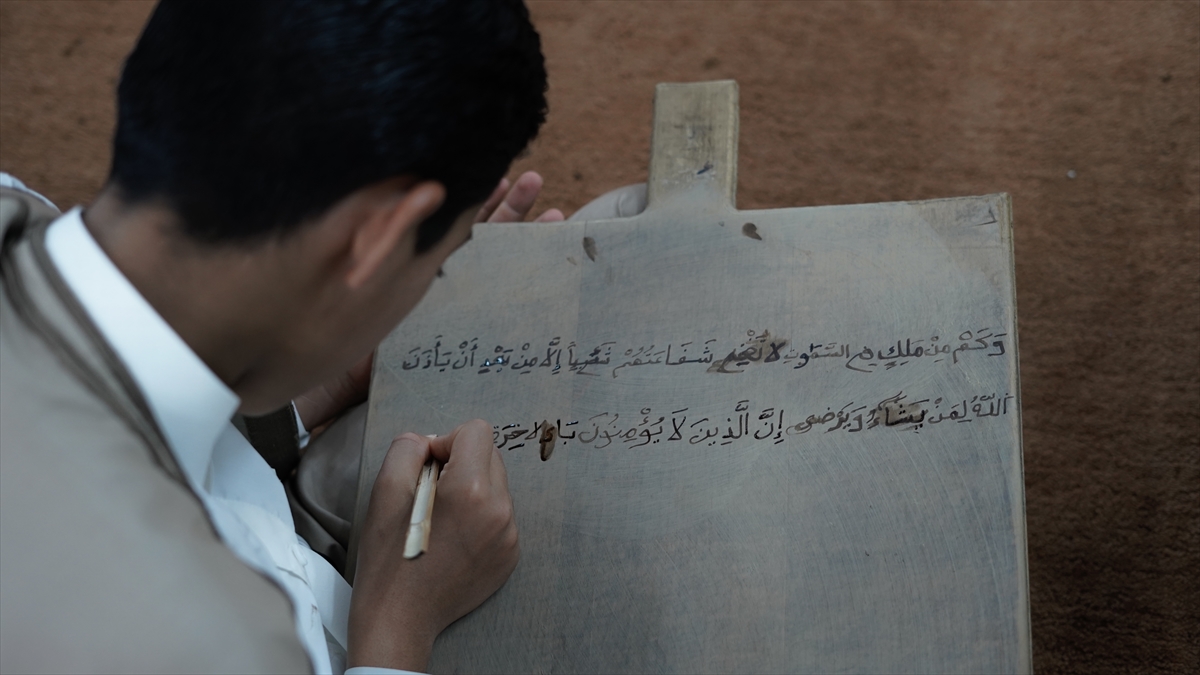 وَكَم مِّن مَّلَكٍ فِي السَّمَٰوَٰتِ لَا تُغْنِي شَفَاعَتُهُمْ شَيْـًٔا إِلَّا مِنۢ بَعْدِ أَنْ يَأْذَنَ
اَللَّهُ لِمَنْ يَشَآءُ وَيَرْضَىٰ إِنَّ الَّذِينَ لَا يُؤْمِنُونَ بِالْأَخِرَةِ